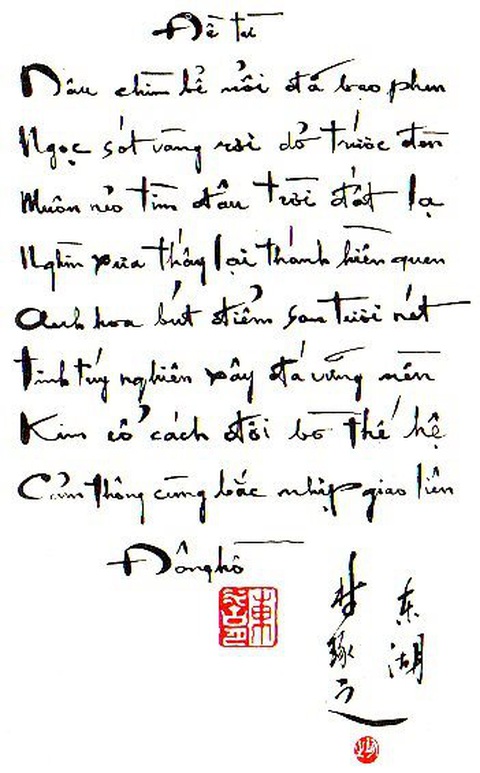 Đề từ
Dâu chìm bể nổi đã bao phen
Ngọc sót vàng rơi dở trước đèn
Muôn nẻo tìm đâu trời đất lạ
Nghìn xưa thấy lại thánh hiền quen
Anh hoa bút điểm sao tươi nét
Tinh túy nghiên xây đá vững nền
Kim cổ cách đôi bờ thế hệ
Cảm thông cùng bắc nhịp giao liên
Đông hồ
东湖
林琢之